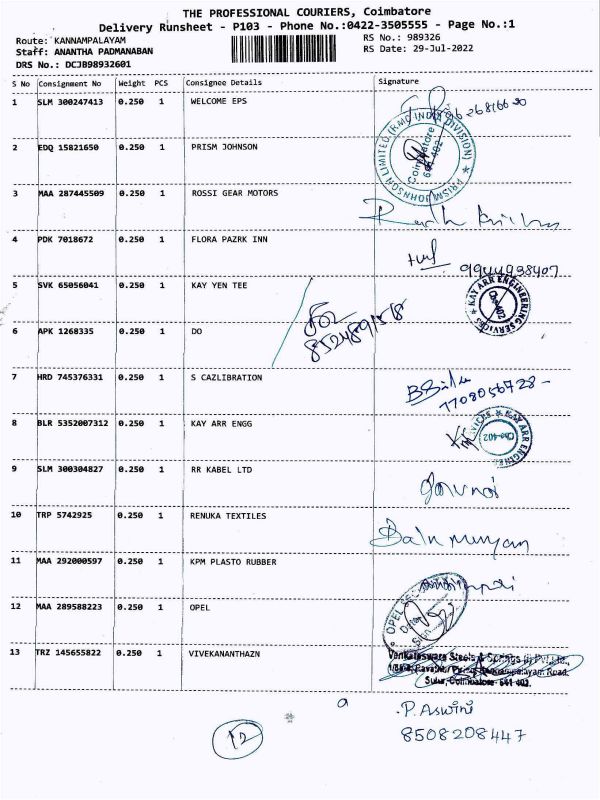 THE PROFESSIONAL COURIERS, Coimbatore
Delivery Runsheet - P103 - Phone No.:0422-3505555 - Page No.:1
Route: KANNAMPALAYAM
RS No.: 989326
Staff: ANANTHA PADMANABAN
RS Date: 29-Jul-2022
DRS No.: DCJB98932601
S No Consignment No Weight PCS Consignee Details Signature
1 SLM 300247413 0.250 1 WELCOME EPS
2 EDQ 15821650 0.250 1 PRISM JOHNSON
PRISM JOHNSON LIMITED (RMC INDIA DIVISION)
Coimbatore
641 402
3 MAA 287445509 0.250 1 ROSSI GEAR MOTORS
4 PDK 7018672 0.250 1 FLORA PAZRK INN
9944938407
5 SVK 65056041 0.250 1 KAY YEN TEE
KAY ARR ENGINEERING SERVICES
Cbe-402
6 APK 1268335 0.250 1 DO
7 HRD 745376331 0.250 1 S CAZLIBRATION
7708056728
8 BLR 5352007312 0.250 1 KAY ARR ENGG
Cbe-402
9 SLM 300304827 0.250 1 RR KABEL LTD
10 TRP 5742925 0.250 1 RENUKA TEXTILES
11 MAA 292000597 0.250 1 KPM PLASTO RUBBER
12 MAA 289588223 0.250 1 OPEL
OPEL
13 TRZ 145655822 0.250 1 VIVEKANANTHAZN
Venkateswara Steels & Springs (I) Pvt Ltd.,
Sulur, Coimbatore- 641 402.
P. Aswini
8508208447
12